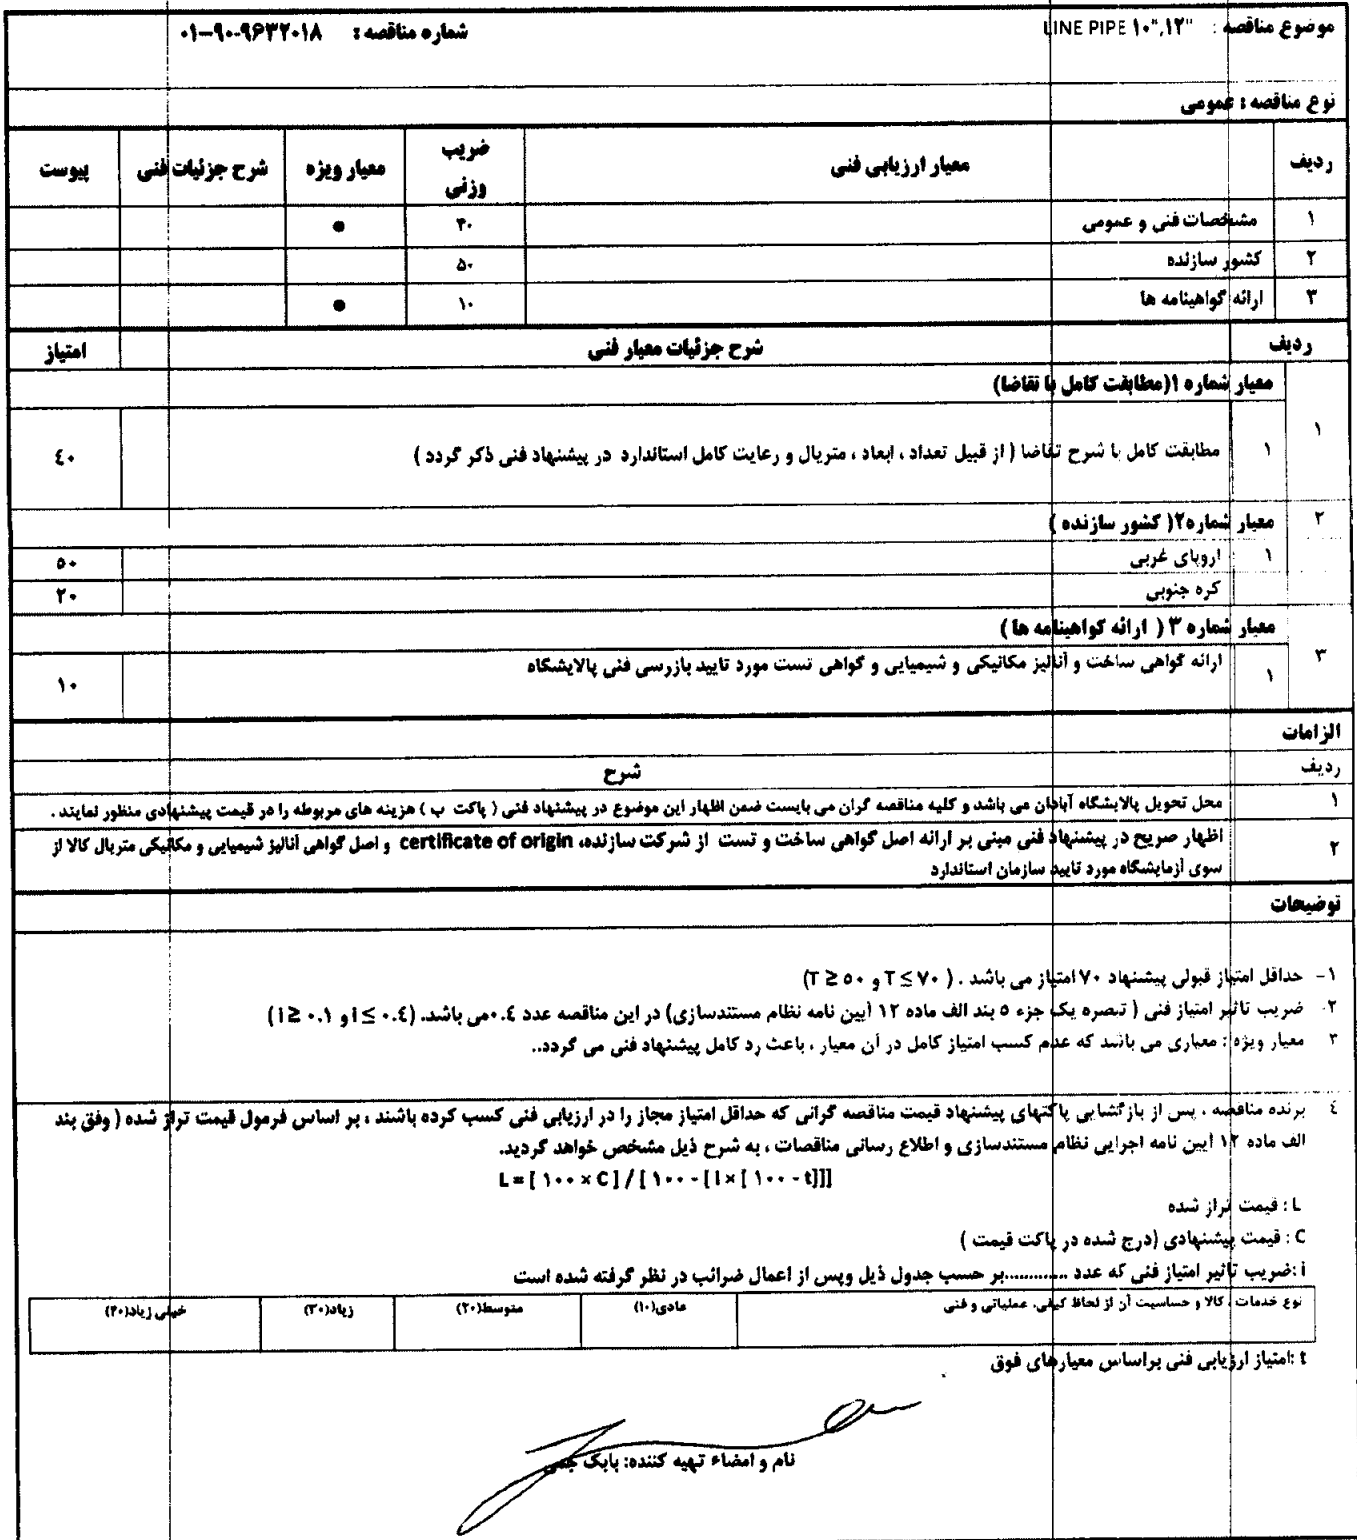 موضوع مناقصه : LINE PIPE ۱۰",۱۲" شماره مناقصه : ۰۱-۹۰-۹۶۳۲۰۱۸
نوع مناقصه : عمومی
ردیف معیار ارزیابی فنی ضریب وزنی معیار ویژه شرح جزئیات فنی پیوست
۱ مشخصات فنی و عمومی ۴۰ ●
۲ کشور سازنده ۵۰
۳ ارائه گواهینامه ها ۱۰ ●
ردیف شرح جزئیات معیار فنی امتیاز
معیار شماره ۱(مطابقت کامل با تقاضا)
۱ ۱ مطابقت کامل با شرح تقاضا ( از قبیل تعداد ، ابعاد ، متریال و رعایت کامل استاندارد در پیشنهاد فنی ذکر گردد ) ٤۰
۲ معیار شماره۲( کشور سازنده )
۱ اروپای غربی ۵۰
کره جنوبی ۲۰
معیار شماره ۳ ( ارائه گواهینامه ها )
۳ ۱ ارائه گواهی ساخت و آنالیز مکانیکی و شیمیایی و گواهی تست مورد تایید بازرسی فنی پالایشگاه ۱۰
الزامات
ردیف شرح
۱ محل تحویل پالایشگاه آبادان می باشد و کلیه مناقصه گران می بایست ضمن اظهار این موضوع در پیشنهاد فنی ( پاکت ب ) هزینه های مربوطه را در قیمت پیشنهادی منظور نمایند .
۲ اظهار صریح در پیشنهاد فنی مبنی بر ارائه اصل گواهی ساخت و تست از شرکت سازنده، certificate of origin و اصل گواهی آنالیز شیمیایی و مکانیکی متریال کالا از
سوی آزمایشگاه مورد تایید سازمان استاندارد
توضیحات
۱- حداقل امتیاز قبولی پیشنهاد ۷۰ امتیاز می باشد . ( T ≤ ۷۰ و T ≥ ۵۰)
۲- ضریب تاثیر امتیاز فنی ( تبصره یک جزء ۵ بند الف ماده ۱۲ آیین نامه نظام مستندسازی) در این مناقصه عدد ۰.٤می باشد. (I ≤ ۰.٤ و I ≥ ۰.۱ )
۳ معیار ویژه : معیاری می باشد که عدم کسب امتیاز کامل در آن معیار ، باعث رد کامل پیشنهاد فنی می گردد..
٤ برنده مناقصه ، پس از بازگشایی پاکتهای پیشنهاد قیمت مناقصه گرانی که حداقل امتیاز مجاز را در ارزیابی فنی کسب کرده باشند ، بر اساس فرمول قیمت تراز شده ( وفق بند
الف ماده ۱۲ آیین نامه اجرایی نظام مستندسازی و اطلاع رسانی مناقصات ، به شرح ذیل مشخص خواهد گردید.
L = [ ۱۰۰ × C ] / [ ۱۰۰ - [ I × [ ۱۰۰ - t]]]
L : قیمت تراز شده
C : قیمت پیشنهادی (درج شده در پاکت قیمت )
i :ضریب تاثیر امتیاز فنی که عدد ............بر حسب جدول ذیل وپس از اعمال ضرائب در نظر گرفته شده است
نوع خدمات ، کالا و حساسیت آن از لحاظ کیفی، عملیاتی و فنی عادی(۱۰) متوسط(۲۰) زیاد(۳۰) خیلی زیاد(۴۰)
t :امتیاز ارزیابی فنی براساس معیارهای فوق
نام و امضاء تهیه کننده: بابک